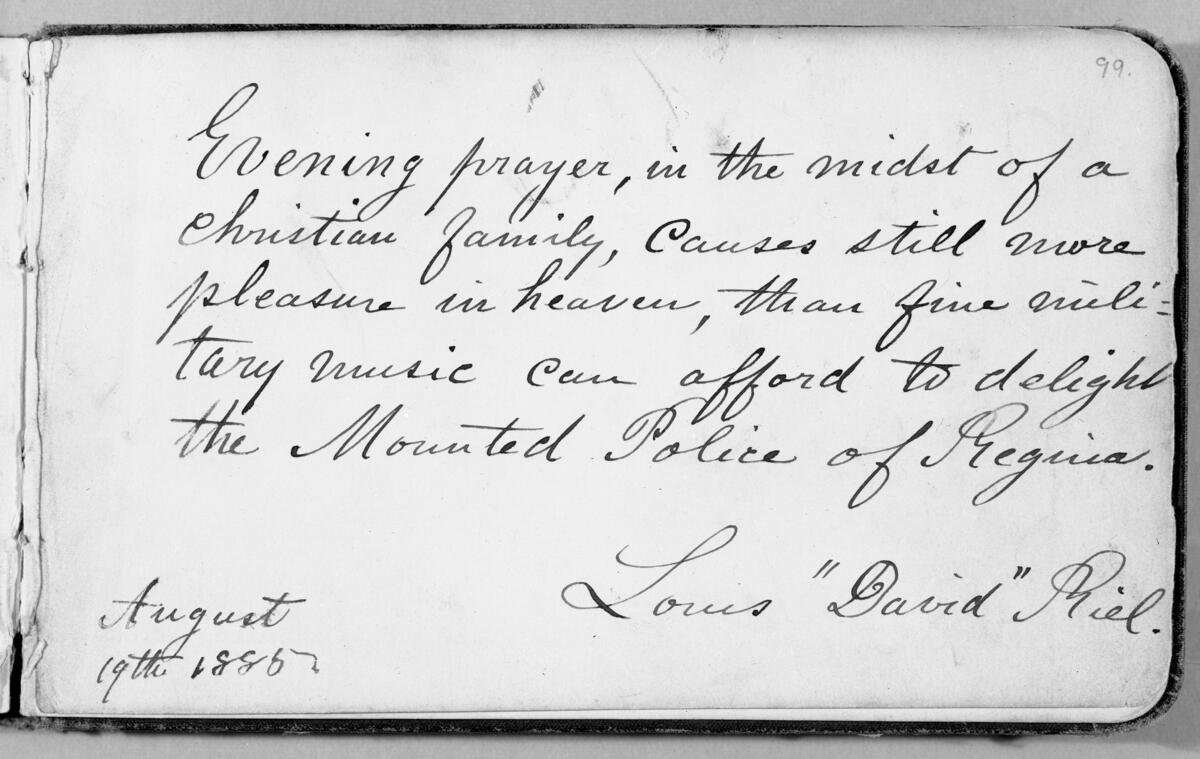 99.
Evening prayer, in the midst of a
christian family, causes still more
pleasure in heaven, than fine mili=
tary music can afford to delight
the Mounted Police of Regina.
Louis "David" Riel.
August
19th 1885